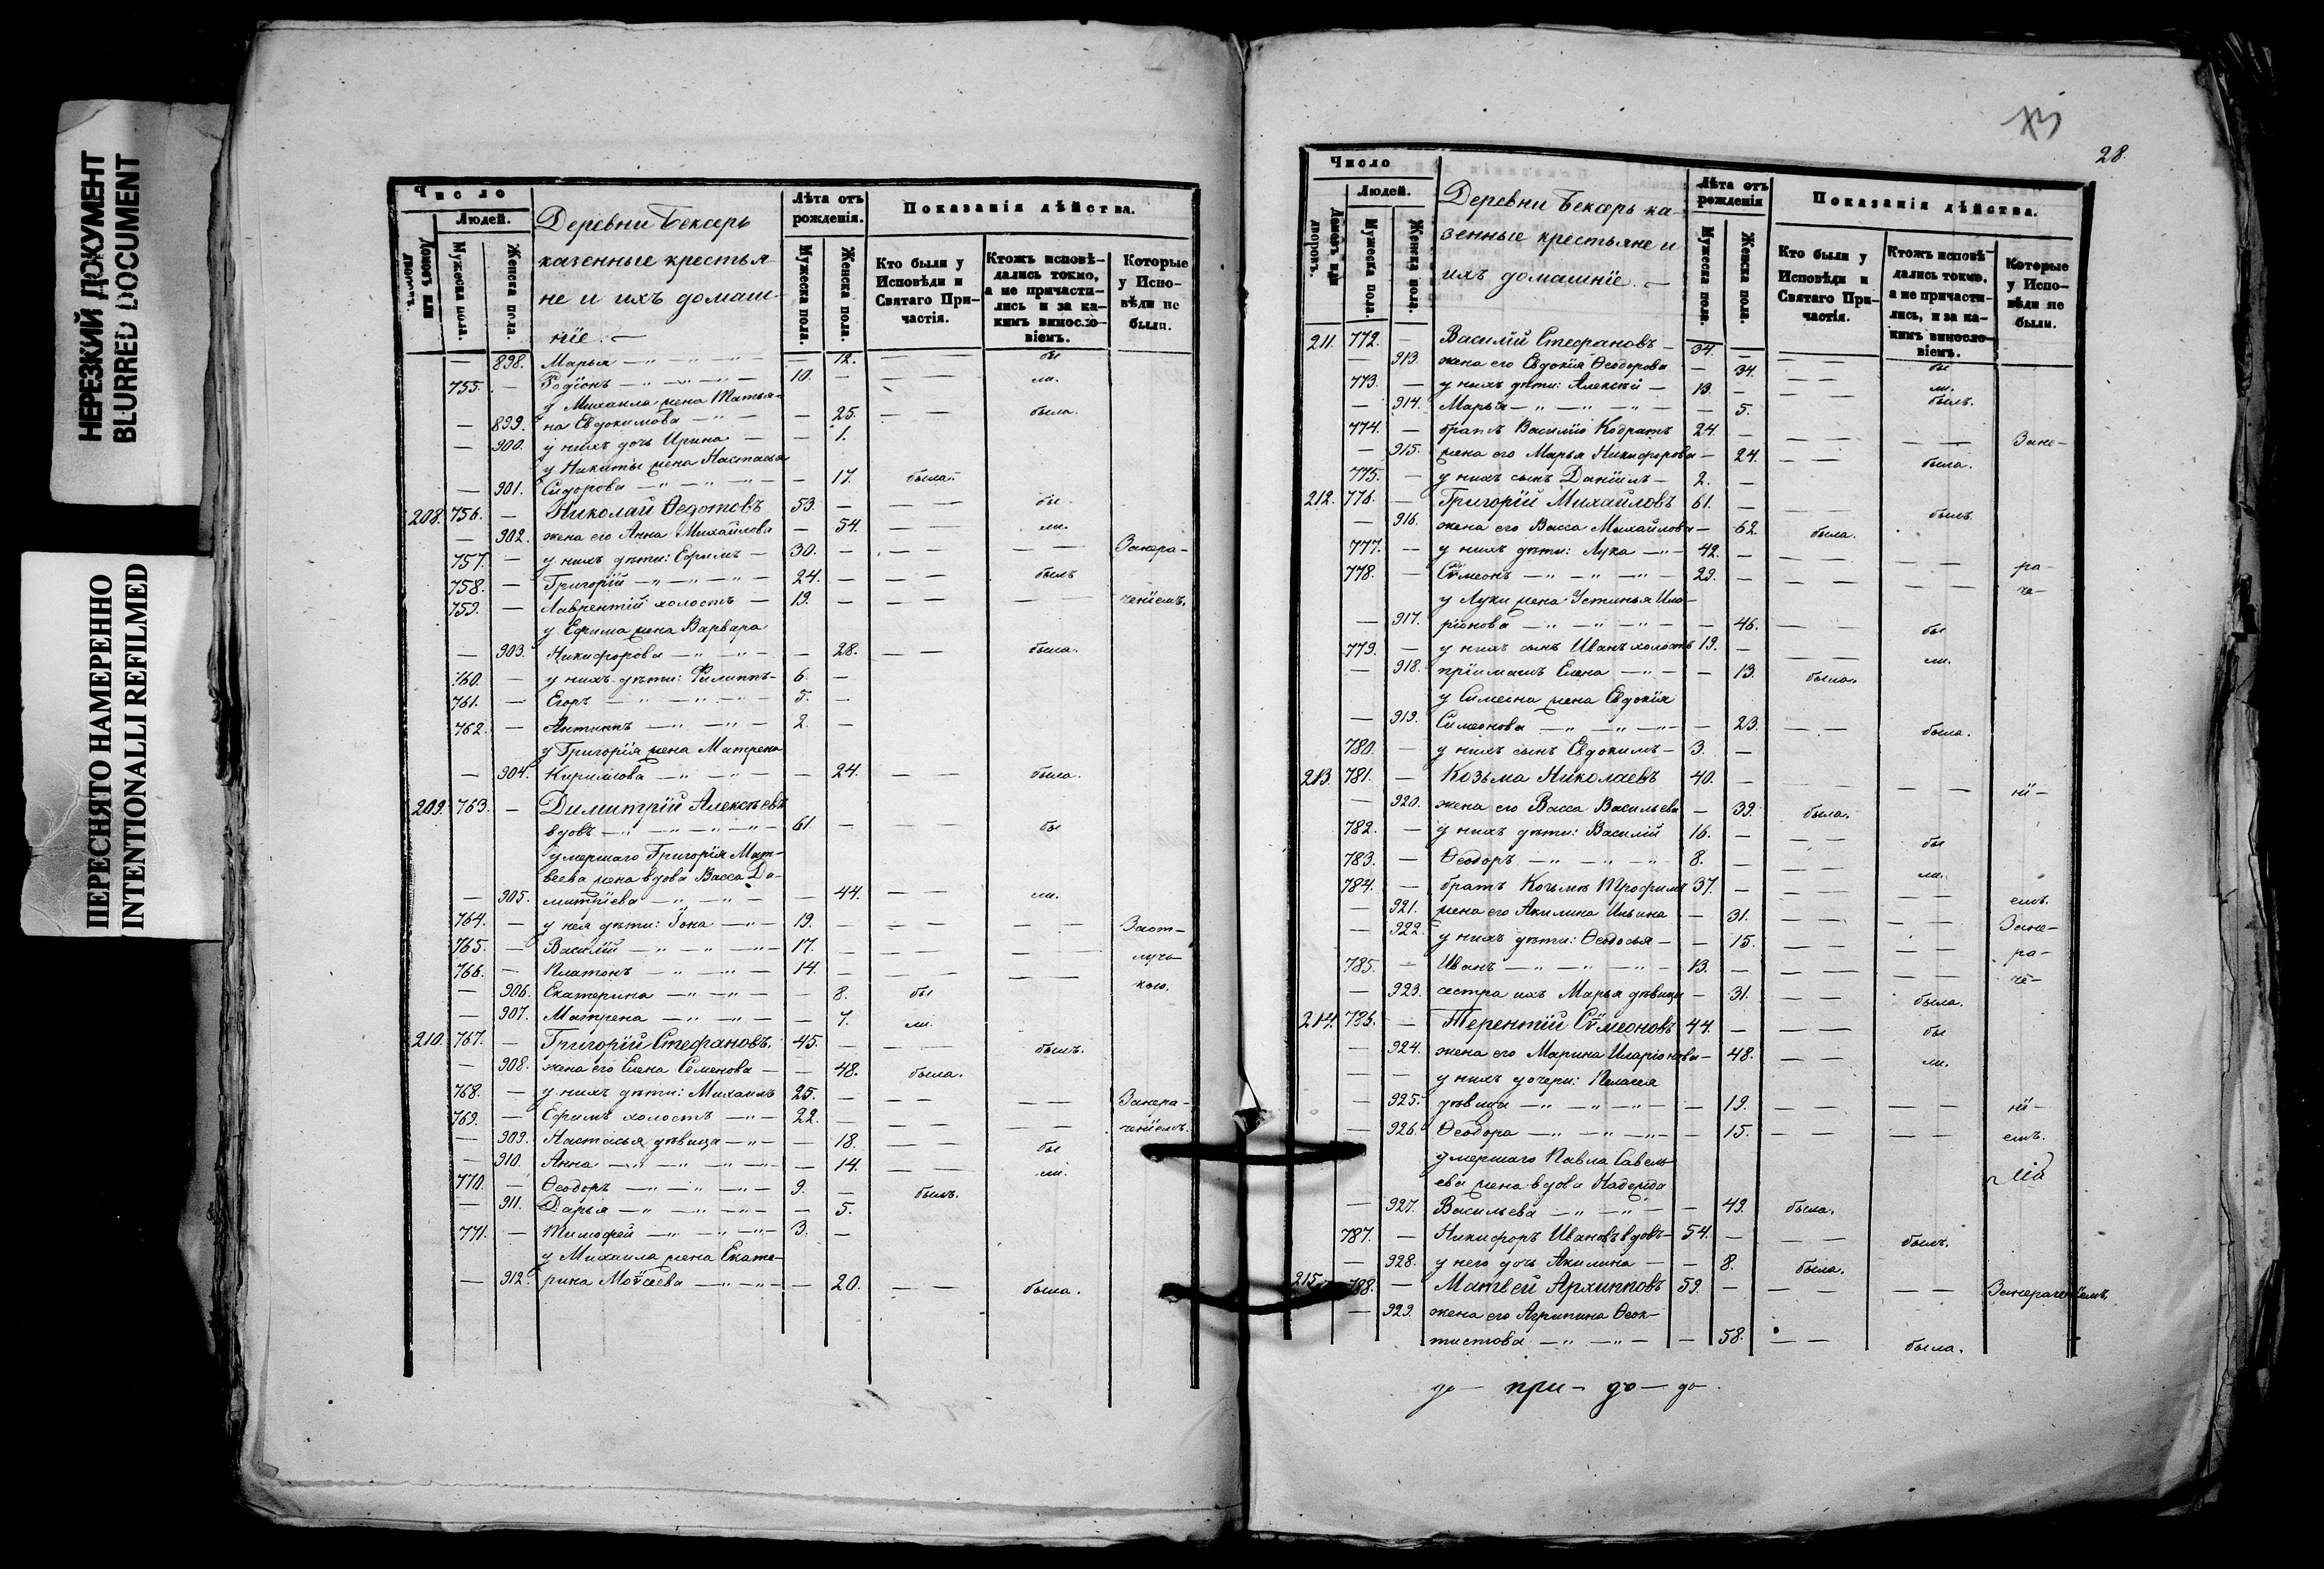 НЕРЕЗКИЙ ДОКУМЕНТ
BLURRED DOCUMENT
ПЕРЕСНЯТО НАМЕРЕННО
INTENTIONALLI REFILMED
Число
Людей.
Домовъ или дворовъ.
Мужеска пола.
Женска пола.
Деревни Бексеръ
казенные крестья-
не и ихъ домаш-
ніе. —
Лѣта отъ рожденія.
Мужеска пола.
Женска пола.
Показанія дѣйства.
Кто были у Исповѣди и Святаго При-частія.
Ктожъ исповѣ-дались токмо, а не причасти-лись и за ка-кимъ винословіемъ.
Которые у Испо-вѣди не были.
— 898. Марья — 12. — — бы
755. — Родіонъ 10. — — — ли.
у Михаила жена Татья-
— 899. на Евдокимова — 25. — — была.
— 900. у нихъ дочь Ирина — 1.
у Никиты жена Настасья
— 901. Сидорова — 17. была.
208. 756. — Николай Ѳедотовъ 53. — — — бы
— 902. жена его Анна Михайлова — 54. — — ли.
757. — у нихъ дѣти: Ефимъ — 30. — — — — — Занера-
758. — Григорій 24. — — — былъ
759. — Лаврентій холостъ — 19. — — — — — ченіемъ.
у Ефима жена Варвара
— 903. Никифорова — 28. — — была.
760. — у нихъ дѣти: Филиппъ — 6. —
761. — Егоръ 5. —
762. — Антипъ 2. —
у Григорія жена Матрена
— 904. Кирилова — 24. — — была.
209. 763. — Димитрій Алексѣевъ
вдовъ 61. — — — бы
умершаго Григорія Мат-
веева жена вдова Васса Ди-
— 905. митріева — 44. — — ли.
764. — у нея дѣти: Іона 19. — — — — — Заот-
765. — Василій 17. — — — — — луч-
766. — Платонъ 14. — — — — — кою.
— 906. Екатерина — 8. бы
— 907. Матрена — 7. ли.
210. 767. — Григорій Стефановъ. 45. — — — былъ.
— 908. жена его Елена Семенова — 48. была.
768. — у нихъ дѣти: Михаилъ 25. — — — — — Занера-
769. — Ефимъ холостъ 22. — — — — — ченіемъ.
— 909. Настасья дѣвица — 18. — — бы
— 910. Анна — 14. — — ли.
770. — Ѳеодоръ 9. — былъ.
— 911. Дарья — 5.
771. — Тимофей 3. —
у Михаила жена Екате-
— 912. рина Моѵсеева — 20. — — была.
28
Число
Людей.
Домовъ или дворовъ.
Мужеска пола.
Женска пола.
Деревни Бексеръ ка-
зенные крестьяне и
ихъ домашніе. —
Лѣта отъ рожденія
Мужеска пола.
Женска пола.
Показанія дѣйства.
Кто были у Исповѣди и Святаго При-частія.
Ктожъ исповѣ-дались токмо, а не причасти-лись, и за ка-кимъ винословіемъ.
Которые у Испо-вѣди не были.
211. 772. — Василій Стефановъ — 34. — — — бы
— 913. жена его Евдокія Ѳеодорова — 34. — — ли.
773. — у нихъ дѣти: Алексѣй — 13. — — — былъ.
— 914. Марья — 5.
774. — братъ Василію Кодратъ 24. — — — — — Зане-
— 915. жена его Марья Никифорова — 24. — — была.
775. — у нихъ сынъ Даніилъ — 2. —
212. 776. — Григорій Михайловъ 61. — — — былъ.
— 916. жена его Васса Михайлова — 62. была.
777. — у нихъ дѣти: Лука 42. — — — — — ра-
778. — Сѵмеонъ 29. — — — — — че-
у Луки жена Устинья Ила-
— 917. ріонова — 46. — — бы
779. — у нихъ сынъ Иванъ холостъ 19. — — — ли.
— 918. пріимашъ Елена — 13. была.
у Симеона жена Евдокія
— 919. Симеонова — 23. — — была.
780. — у нихъ сынъ Евдокимъ — 3. —
213. 781. — Козьма Николаевъ 40. — — — — — ні-
— 920. жена его Васса Васильева — 39. была.
782. — у нихъ дѣти: Василій 16. — — — бы
783. — Ѳеодоръ 8. — — — ли.
784. — братъ Козьмѣ Трофимъ 37. — — — — — емъ.
— 921. жена его Акилина Ильина — 31. — — — — Зане-
— 922. у нихъ дѣти: Ѳеодосья — 15. — — — — ра-
785. — Иванъ 13. — — — — — че-
— 923. сестра ихъ Марья дѣвица — 31. — — была.
214. 786. — Терентій Сѵмеоновъ 44. — — — бы
— 924. жена его Марина Иларіонова — 48. — — ли.
у нихъ дочери: Пелагея
— 925. дѣвица — 19. — — — — ні-
— 926. Ѳеодора — 15. — — — — емъ.
умершаго Павла Савель-
ева жена вдова Надежда
— 927. Васильева — 49. была.
787. — Никифоръ Ивановъ вдовъ — 54. — — — былъ.
— 928. у него дочь Акилина — 8. была.
215. 788. — Матвей Архиповъ 59. — — — — — Занераченіемъ
— 929. жена его Агрипина Ѳеок-
тистова — 58. — — была.